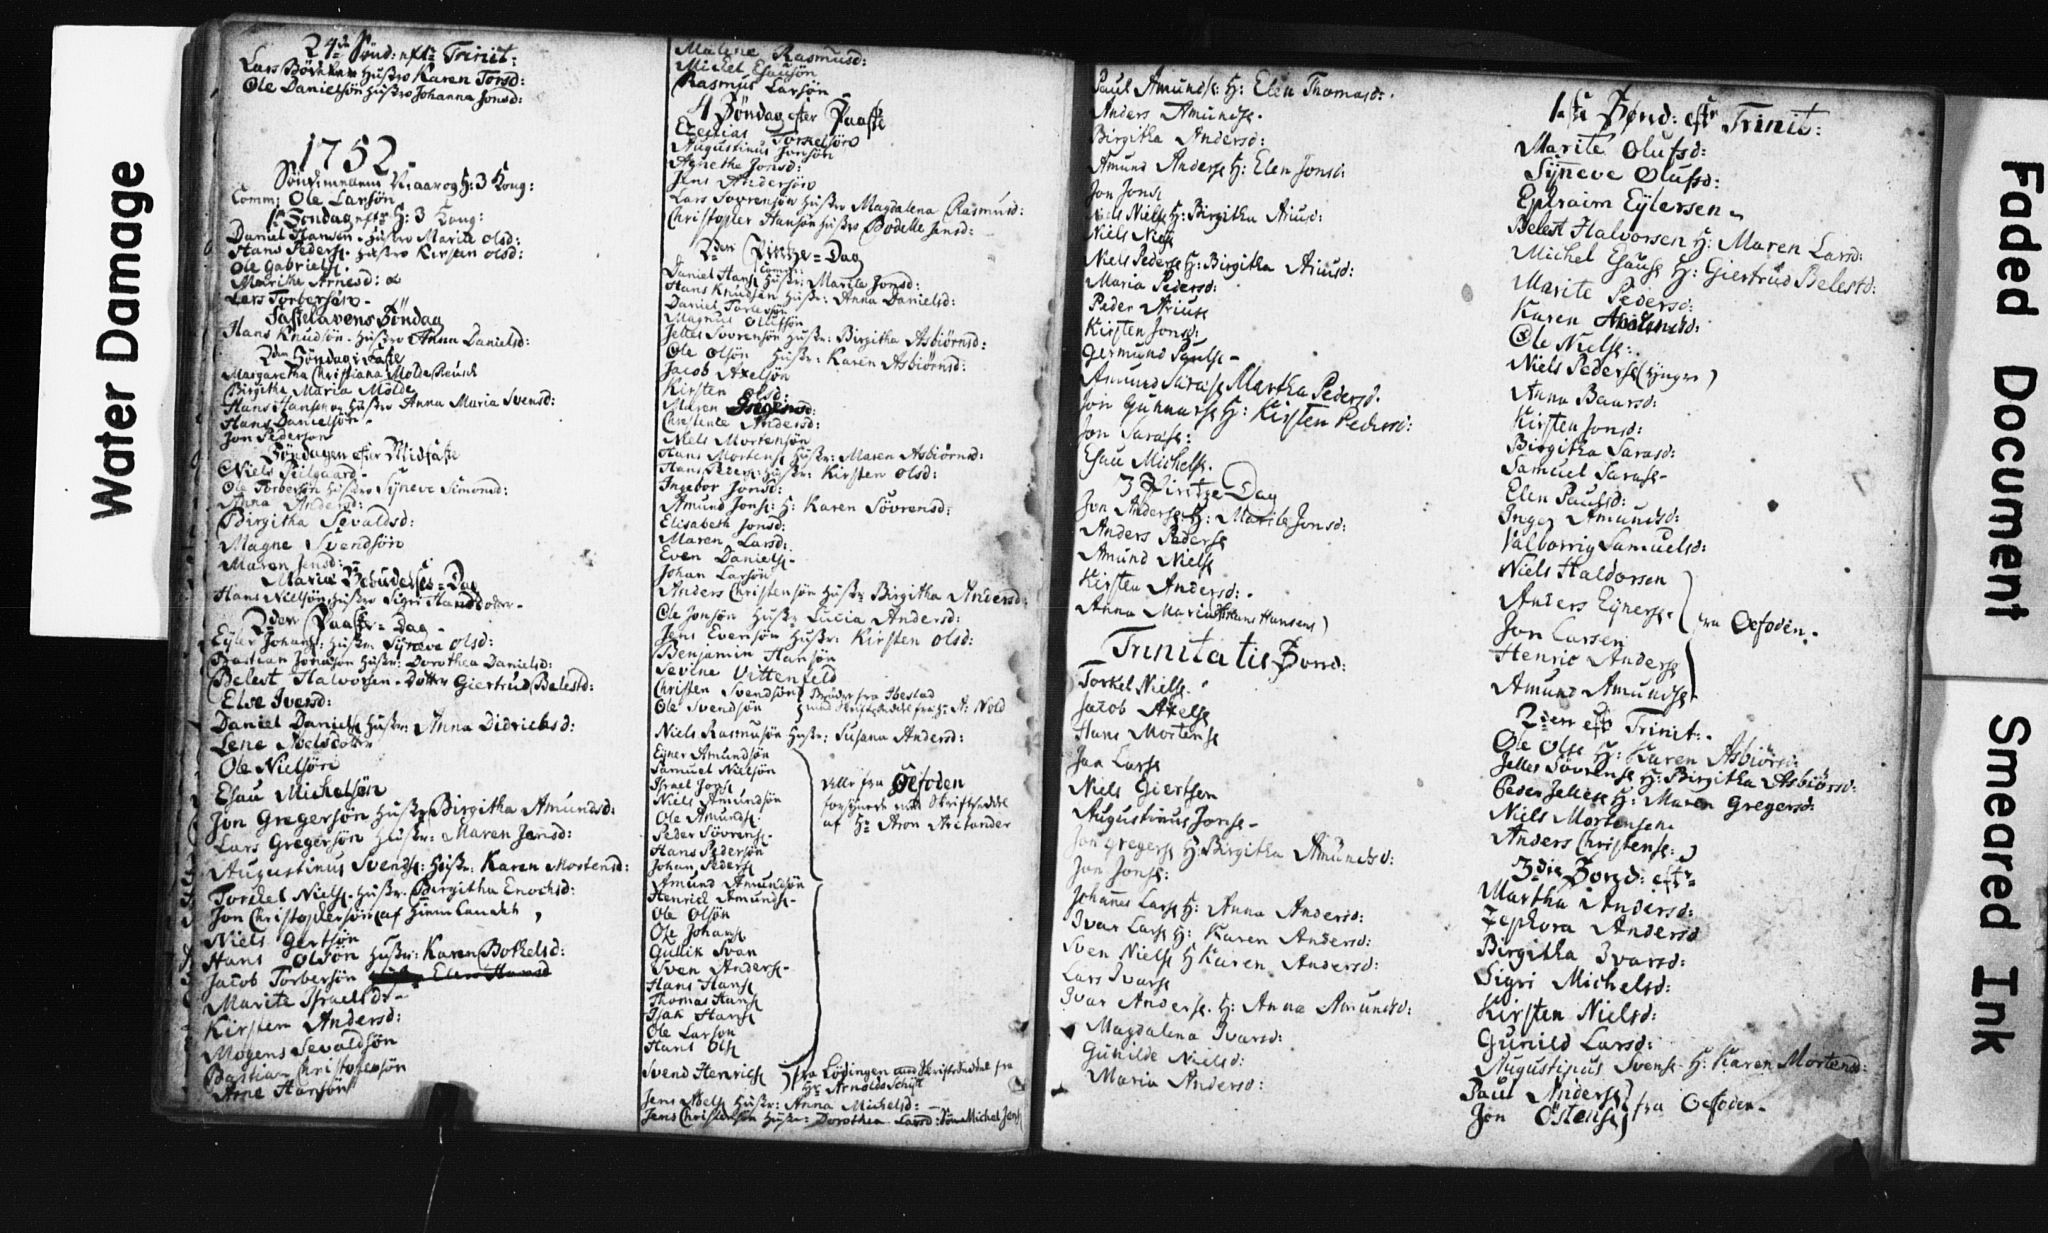 Water Damage
24de Sønd: efter Trinit:
Lars Hußro Karen Torsd:
Ole Danielsøn Hußro Johanna Jonsd:
1752
Sønd: mellem Ny: aar og H: 3 Kong:
Comm: Ole Larsøn
1te Søndag efter H: 3 Kong:
Daniel Hansøn Hußro Marite Olsd:
Hans Peders. Hußro Kirsten Olsd:
Ole Gabriels.
Marithe Arnesd:
Lars Torbersøn
Fastelavens Søndag
Hans Knudsøn. Hußro Anna Danielsd:
2den Søndag i Faste
Margaretha Christiana Molde Preusch
Birgithe Maria Molde
Hans Hansen Hußro Anna Maria Svensd:
Hans Danielsøn
Jon Pedersøn
Søndagen efter Midfaste
Niels Peilgaard
Ole Torbersøn Hußro Syneve Simonsd:
Anna Andersd:
Birgitha Sevaldsd:
Magne Svendsøn
Maren Jensd:
Mariæ Bebudelses-Dag
Hans Nielsøn Hußro Sigri Hansdotter
2den Paaske-Dag
Eyler Johans: Hußro Syneve Olsd:
Bastian Jonasøn Hußr: Dorothea Danielsd:
Belest Halvorsen. Dotter Giertrud Belestd:
Else Iversd:
Daniel Daniels Hußr: Anna Didrichsd:
Lene Noelsdotter
Ole Nielsøn
Esau Michelsøn
Jon Gregersøn Hußr: Birgitha Amundsd:
Lars Gregersøn Hußr: Maren Jensd:
Augustinus Svends: Hußr: Karen Mortensd:
Torkel Niels. Hußr. Birgitha Enochsd:
Jon Christophersøn af
Niels Gertsøn
Hans Olsøn Hußr: Karen Botkelsd:
Jacob Torbersøn Elen Hansd
Marite Israelsdr
Kirsten Andersd:
Mogens Sevaldsøn
Bastian Christophersøn
Arne Hansøn
Malene Rasmusd:
Michel Esausøn
Rasmus Larsøn
4 Søndag efter Paaske
Ezechias Torkelsøn
Augustinus Jonsøn
Agnethe Jonsd:
Jens Andersøn
Lars Sovrensøn Hußr Magdalena Rasmusd:
Christopher Hansøn Hußro Bodelle Jensd:
2den Pintze-Dag
Comm:
Daniel Hans Hußr: Marite Jonsd:
Hans Knudsøn Hußr: Anna Danielsd:
Daniel Torlessøn
Magnus Olufsøn
Jelles Sovrensøn Hußr: Birgitha Asbiørnsd:
Ole Olsøn Hußr: Karen Asbiørnsd:
Jacob Axelsøn
Kirsten Olsd:
Maren Gregersd:
Chrestente Andersd:
Niels Mortensøn
Hans Mortens Hußr: Maren Asbiørnsd:
Hans Peders: Hußr: Kirsten Olsd:
Ingebor Jonsd:
Amund Jons: H: Karen Sövrensd:
Elisabeth Jonsd:
Maren Larsd:
Even Daniels
Johan Larsøn
Anders Christensøn Hußr Birgitha Andersd:
Ole Jonsøn Hußr Lucia Andersd:
Jens Evensøn Hußr: Kirsten Olsd:
Benjamin Hansøn
Sevine Vittenfeld
Christen Svendsøn Brødre fra Ibestad
Ole Svendsøn med Skriftseddel fra Hr: A: Nold
Niels Rasmusøn Hußr: Susana Andersd:
Eyner Amundsøn
Samuel Nielsøn
Israel Jons
Niels Amundsøn
Ole Amunds.
Peder Sövrens.
Hans Pedersøn
Johan Peders
Amund Amundsøn
Henrich Amunds.
Ole Olsøn
Ole Johans
Gullik Svan
Sven Anders.
Hans Hans
Thomas Hans
Isak Hans
Ole Larson
Hans Ols
alle fra Oefoden
forsynede med Skriftseddel
af Hr Aron Arctander
Svend Henrichs fra Lødingen med Skriftseddel fra
Hr: Arnold Schyt
Jens Noels Hußr: Anna Michelsd:
Jens Christensøn Hußr: Dorothea Larsd: Søn Michel Jens
Paul Amunds: H: Elen Thomasd:
Anders Amunds.
Birgitha Andersd:
Amund Anders H: Elen Jonsd:
Jon Jons
Niels Niels H: Birgitha Ariusd:
Niels Niels
Niels Peders H: Birgitha Ariusd:
Maria Pedersd:
Peder Arius
Kirsten Jonsd:
Germund Pauls
Amund Saras Martha Pedersd.
Jon Gunnars H: Kirsten Pedersd:
Jon Saras:
Esau Michels.
3 Pintze Dag
Jon Anders: H: Marite Jonsd:
Anders Peders
Amund Niels
Kirsten Andersd:
Anna Maria (Hans Hansens)
Trinitatis Sond:
Torkel Niels.
Jacob Axels
Hans Mortens
Jan Lars
Niels Giertson
Augustinus Jons
Jon Gregers H: Birgitha Amundsd:
Jon Jons:
Johannes Lars H: Anna Andersd:
Ivar Lars H: Karen Andersd:
Sven Niels H Karen Andersd:
Lars Ivars
Ivar Anders. H: Anna Amundsd:
Magdalena Ivarsd:
Gunilde Nielsd:
Maria Andersd:
1ste Sønd: eftr Trinit:
Marite Olufsd:
Syneve Olufsd:
Ephraim Eylersen
Belest Halvorsen H: Maren Larsd:
Michel Esaus H: Giertrud Belestd:
Marite Pedersd:
Karen
Ole Niels:
Niels Peders (Tjuger)
Anna Baarsd:
Kirsten Jonsd:
Birgitha Sarasd:
Samuel Saras
Elen Paulsd:
Inger Amundsd:
Valborrig Samuelsd:
Niels Haldorsen
Anders Eyners. fra Oefoden.
Jon Larsen
Henric Anders
Amund Amunds.
2den eftr Trinit:
Ole Ols H: Karen Asbiörsd:
Jelles Sövrens H: Birgitha Asbiörsd:
Peder Jelles H: Maren Gregersd:
Niels Mortensen
Anders Christens:
3die Sond: eftr
Martha Andersd:
Zephora Andersd
Birgitha Ivarsd:
Sigri Michelsd:
Kirsten Nielsd:
Gunild Larsd:
Augustinus Svens. H: Karen Mortensd:
Paul Anders
Jon Östens fra Oefoden
Faded Document
Smeared Ink